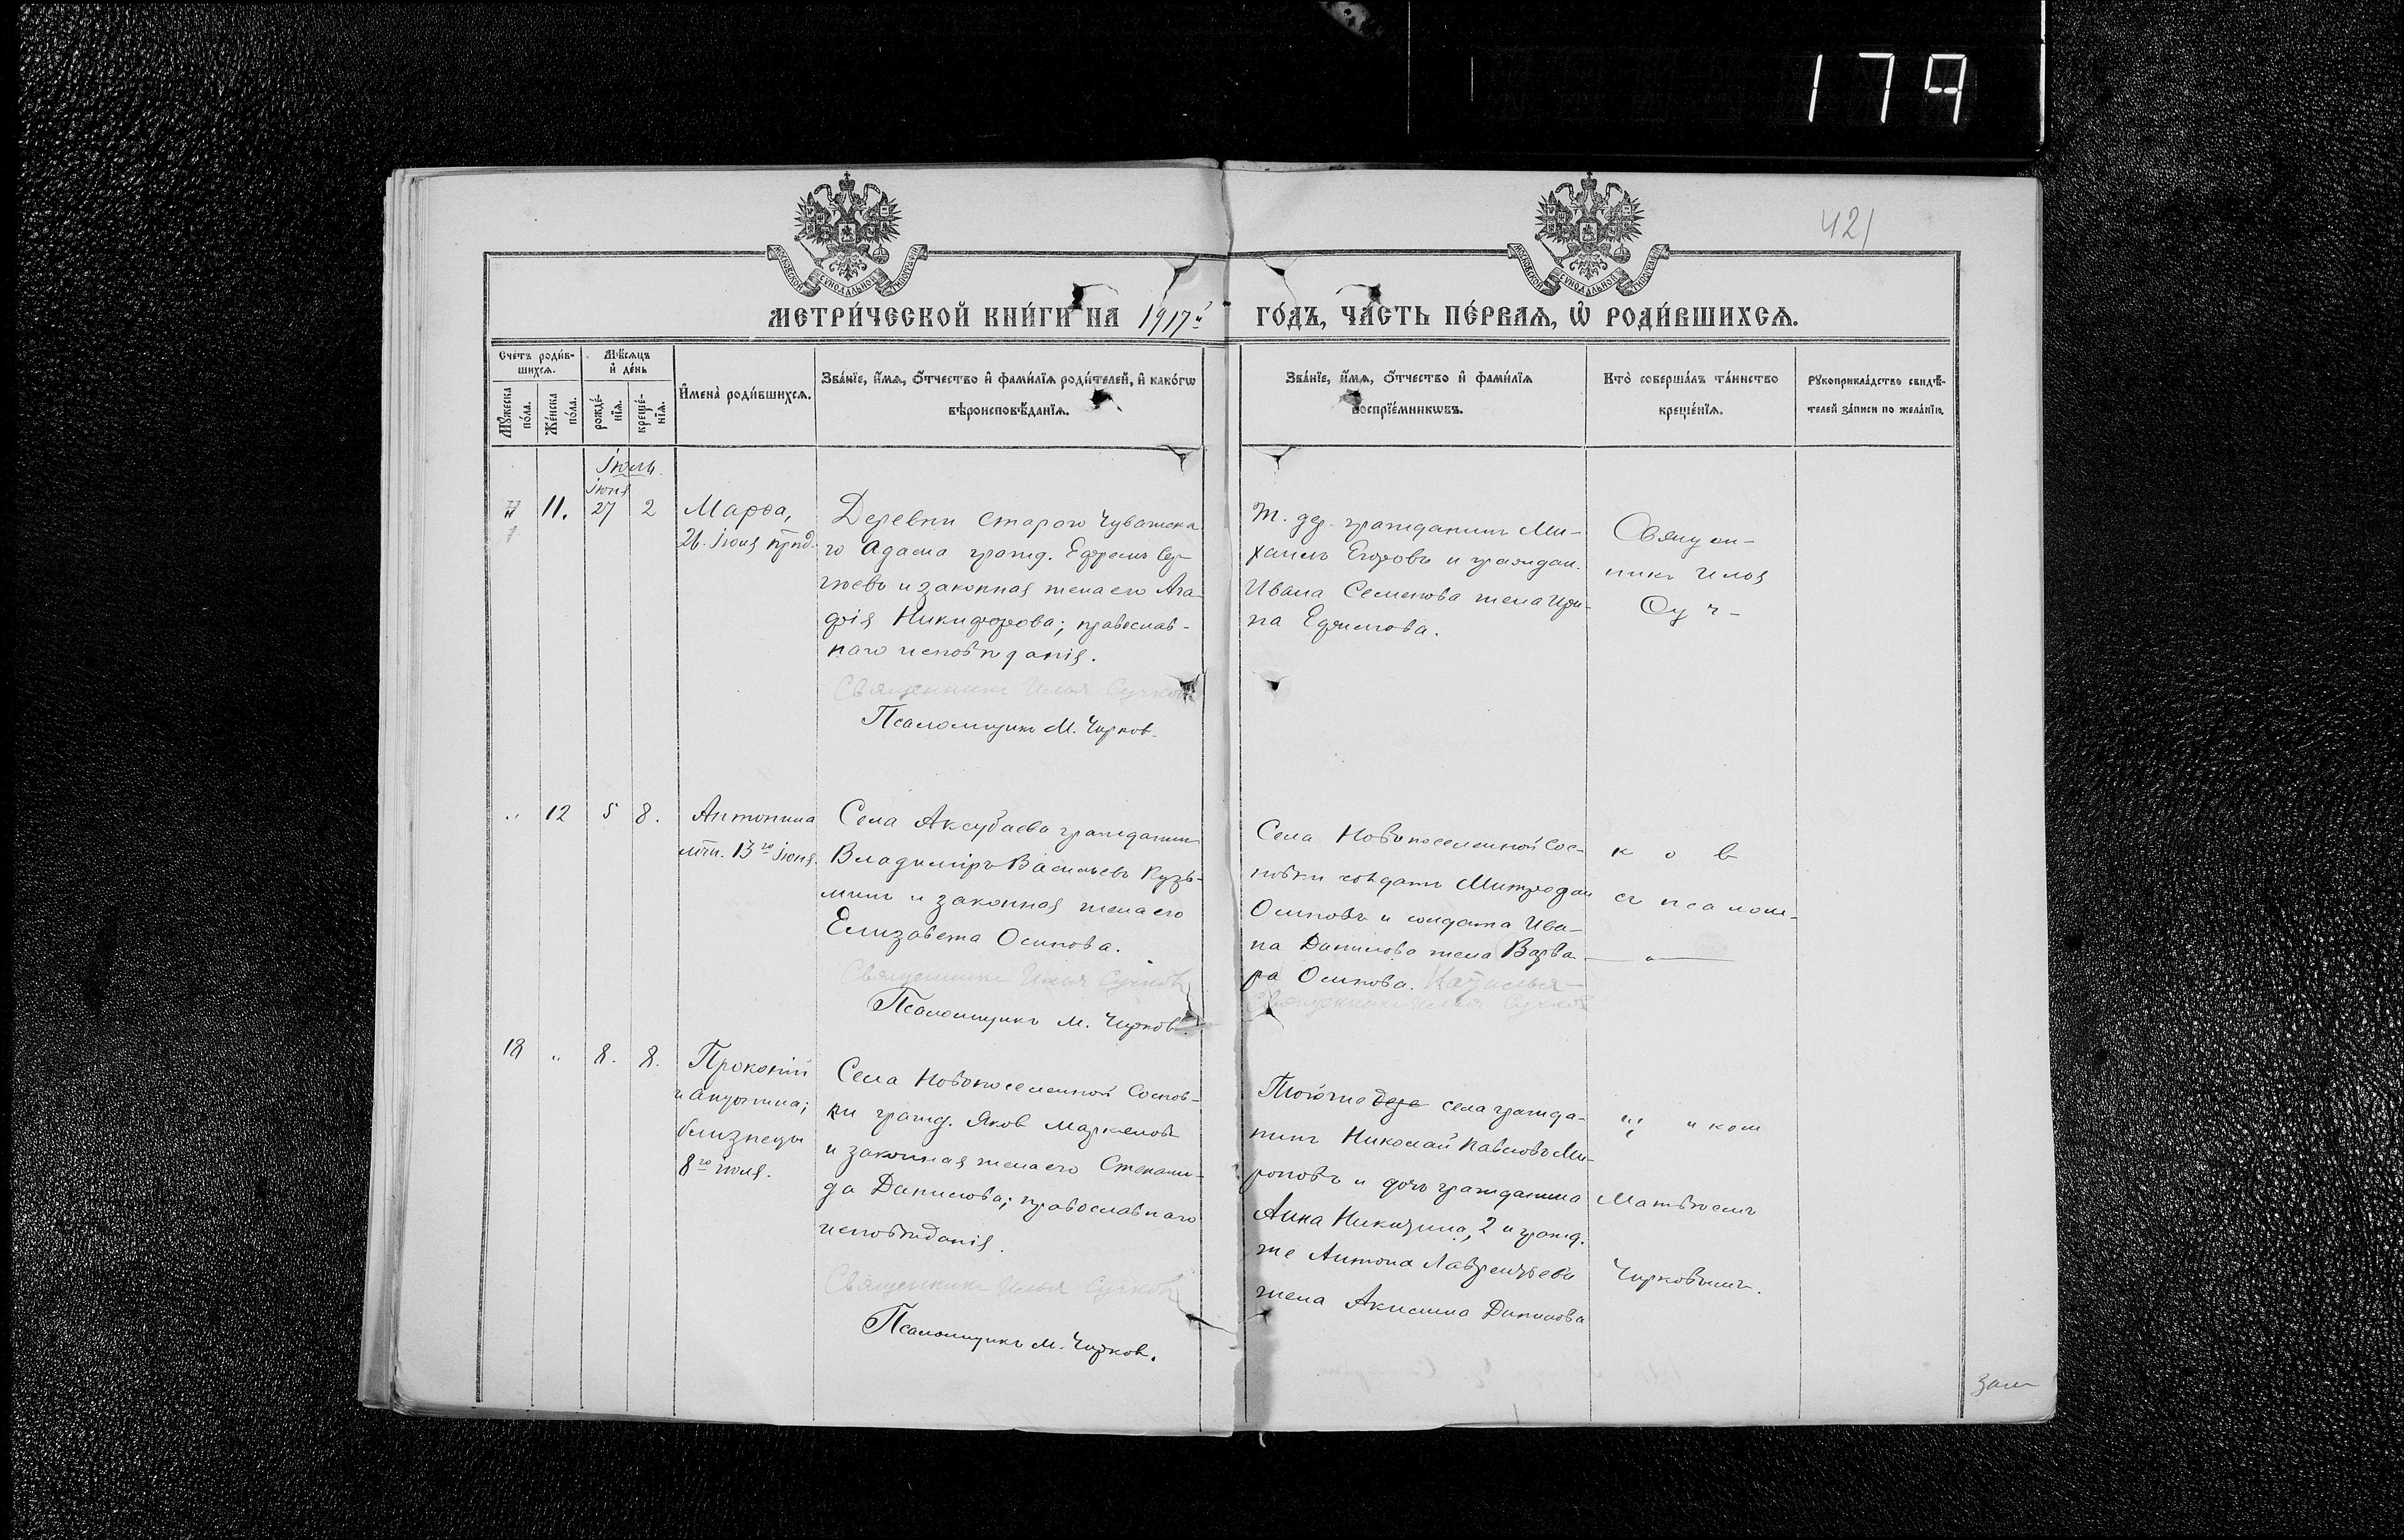 179
421
МОСКОВСКОЙ СѴНОДАЛЬНОЙ ТИПОГРАФІИ
МОСКОВСКОЙ СѴНОДАЛЬНОЙ ТИПОГРАФІИ
МЕТРИ́ЧЕСКОЙ КНИ́ГИ НА 1917й ГО́ДЪ, ЧА́СТЬ ПЕ́РВАѦ, Ѡ҆ РОДИ́ВШИХСѦ.
Счетъ роди́в-
шихсѧ.
Мꙋ́жеска по́ла.
Же́нска по́ла.
Мѣ́сѧцъ
и҆ де́нь
рожде́-
нїѧ.
креще́-
нїѧ.
И҆мена̀ роди́вшихсѧ.
Зва́нїе, и҆́мѧ, о҆́тчество и҆ фами́лїѧ роди́телей, и҆ како́гѡ
вѣроисповѣ́данїѧ.
Зва́нїе, и҆́мѧ, о҆́тчество и҆ фами́лїѧ
воспрїе́мникѡвъ.
Кто̀ соверша́лъ та́инство
креще́нїѧ.
Рꙋкоприкла́дство свидѣ́-
телей за́писи по жела́нїю.
Іюль.
іюня
11. 27 2
Марѳа,
26. Іюня
Деревни Стараго Чувашска
го Адама гражд. Ефремъ Сер-
гѣевъ и законная жена его Ага-
фія Никифорова; православ-
наго исповѣданія.
Священникъ Илья Сучковъ
Псаломщикъ М. Чирков.
Т. дер. гражданинъ Ми-
хаилъ Егоровъ и граждан.
Ивана Семенова жена Ири-
на Ефимова.
Священ-
никъ Илья
Суч-
" 12 5 8.
Антонина
мчн. 13го Іюня.
Села Аксубаева гражданинъ
Владиміръ Васильевъ Кузь-
минъ и законная жена его
Елизавета Осипова.
Священникъ Илья Сучковъ
Псаломщикъ М. Чирков.
Села Новопоселенной Сос-
новки солдатъ Митрофан
Осиповъ и солдата Ива-
на Данилова жена Варва-
ра Осипова.
Священникъ Илья Сучков
к о в
съ псалом-
18 " 8. 8.
Прокопій
близнецы
8го іюля.
Села Новопоселенной Соснов-
ки гражд. Яков Маркелов
и законная жена его Степани-
да Данилова; православнаго
исповѣданія.
Священникъ Илья Сучковъ
Псаломщикъ М. Чирков.
Того же дере села гражда-
нинъ Николай Павловъ Ми-
роновъ и дочь гражданина
Анна Никитина, 2 и гражд.
же Антона Лаврентьева
жена Акилина Данилова
щикомъ
Матвѣемъ
Чирковымъ.